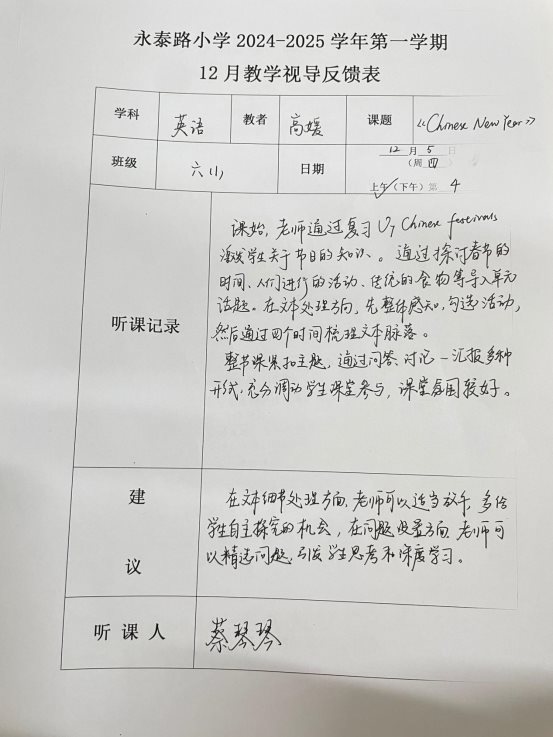 永泰路小学 2024-2025 学年第一学期
12 月教学视导反馈表
学科 英语 教者 高媛 课题 《Chinese New Year》
班级 六(1) 日期 12 月 5 日
(周 四 )
上午✓(下午)第 4
听课记录
课始,老师通过复习 U7 Chinese festivals
激发学生关于节日的知识、。通过探讨春节的
时间、人们进行的活动、传统的食物等导入单元
话题。在文本处理方向,先整体感知,勾选活动,
然后通过四个时间梳理文本脉落。
整节课紧扣主题,通过问答、讨论、汇报多种
形式,充分调动学生课堂参与,课堂氛围较好。
建议
在文本细节处理方面,老师可以适当放手,多给
学生自主探究的机会,在问题设置方向,老师可
以精选问题,引发学生思考和深度学习。
听 课 人 蔡琴琴